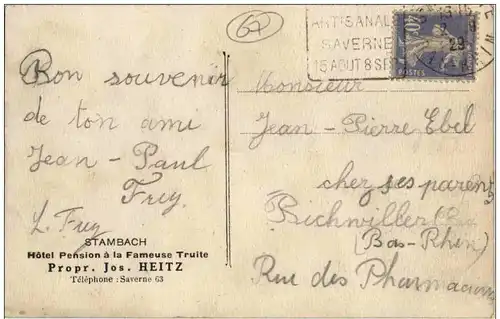 67
ARTISANAL
SAVERNE
15 AOUT 8 SE
29
40
POSTES
Bon souvenir
de ton ami
Jean-Paul
Frey
L. Frey
STAMBACH
Hôtel Pension à la Fameuse Truite
Propr. Jos. HEITZ
Téléphone : Saverne 63
Monsieur
Jean-Pierre Ebel
chez ses parents
Bichwiller
(Bas-Rhin)
Rue des Pharmaciens